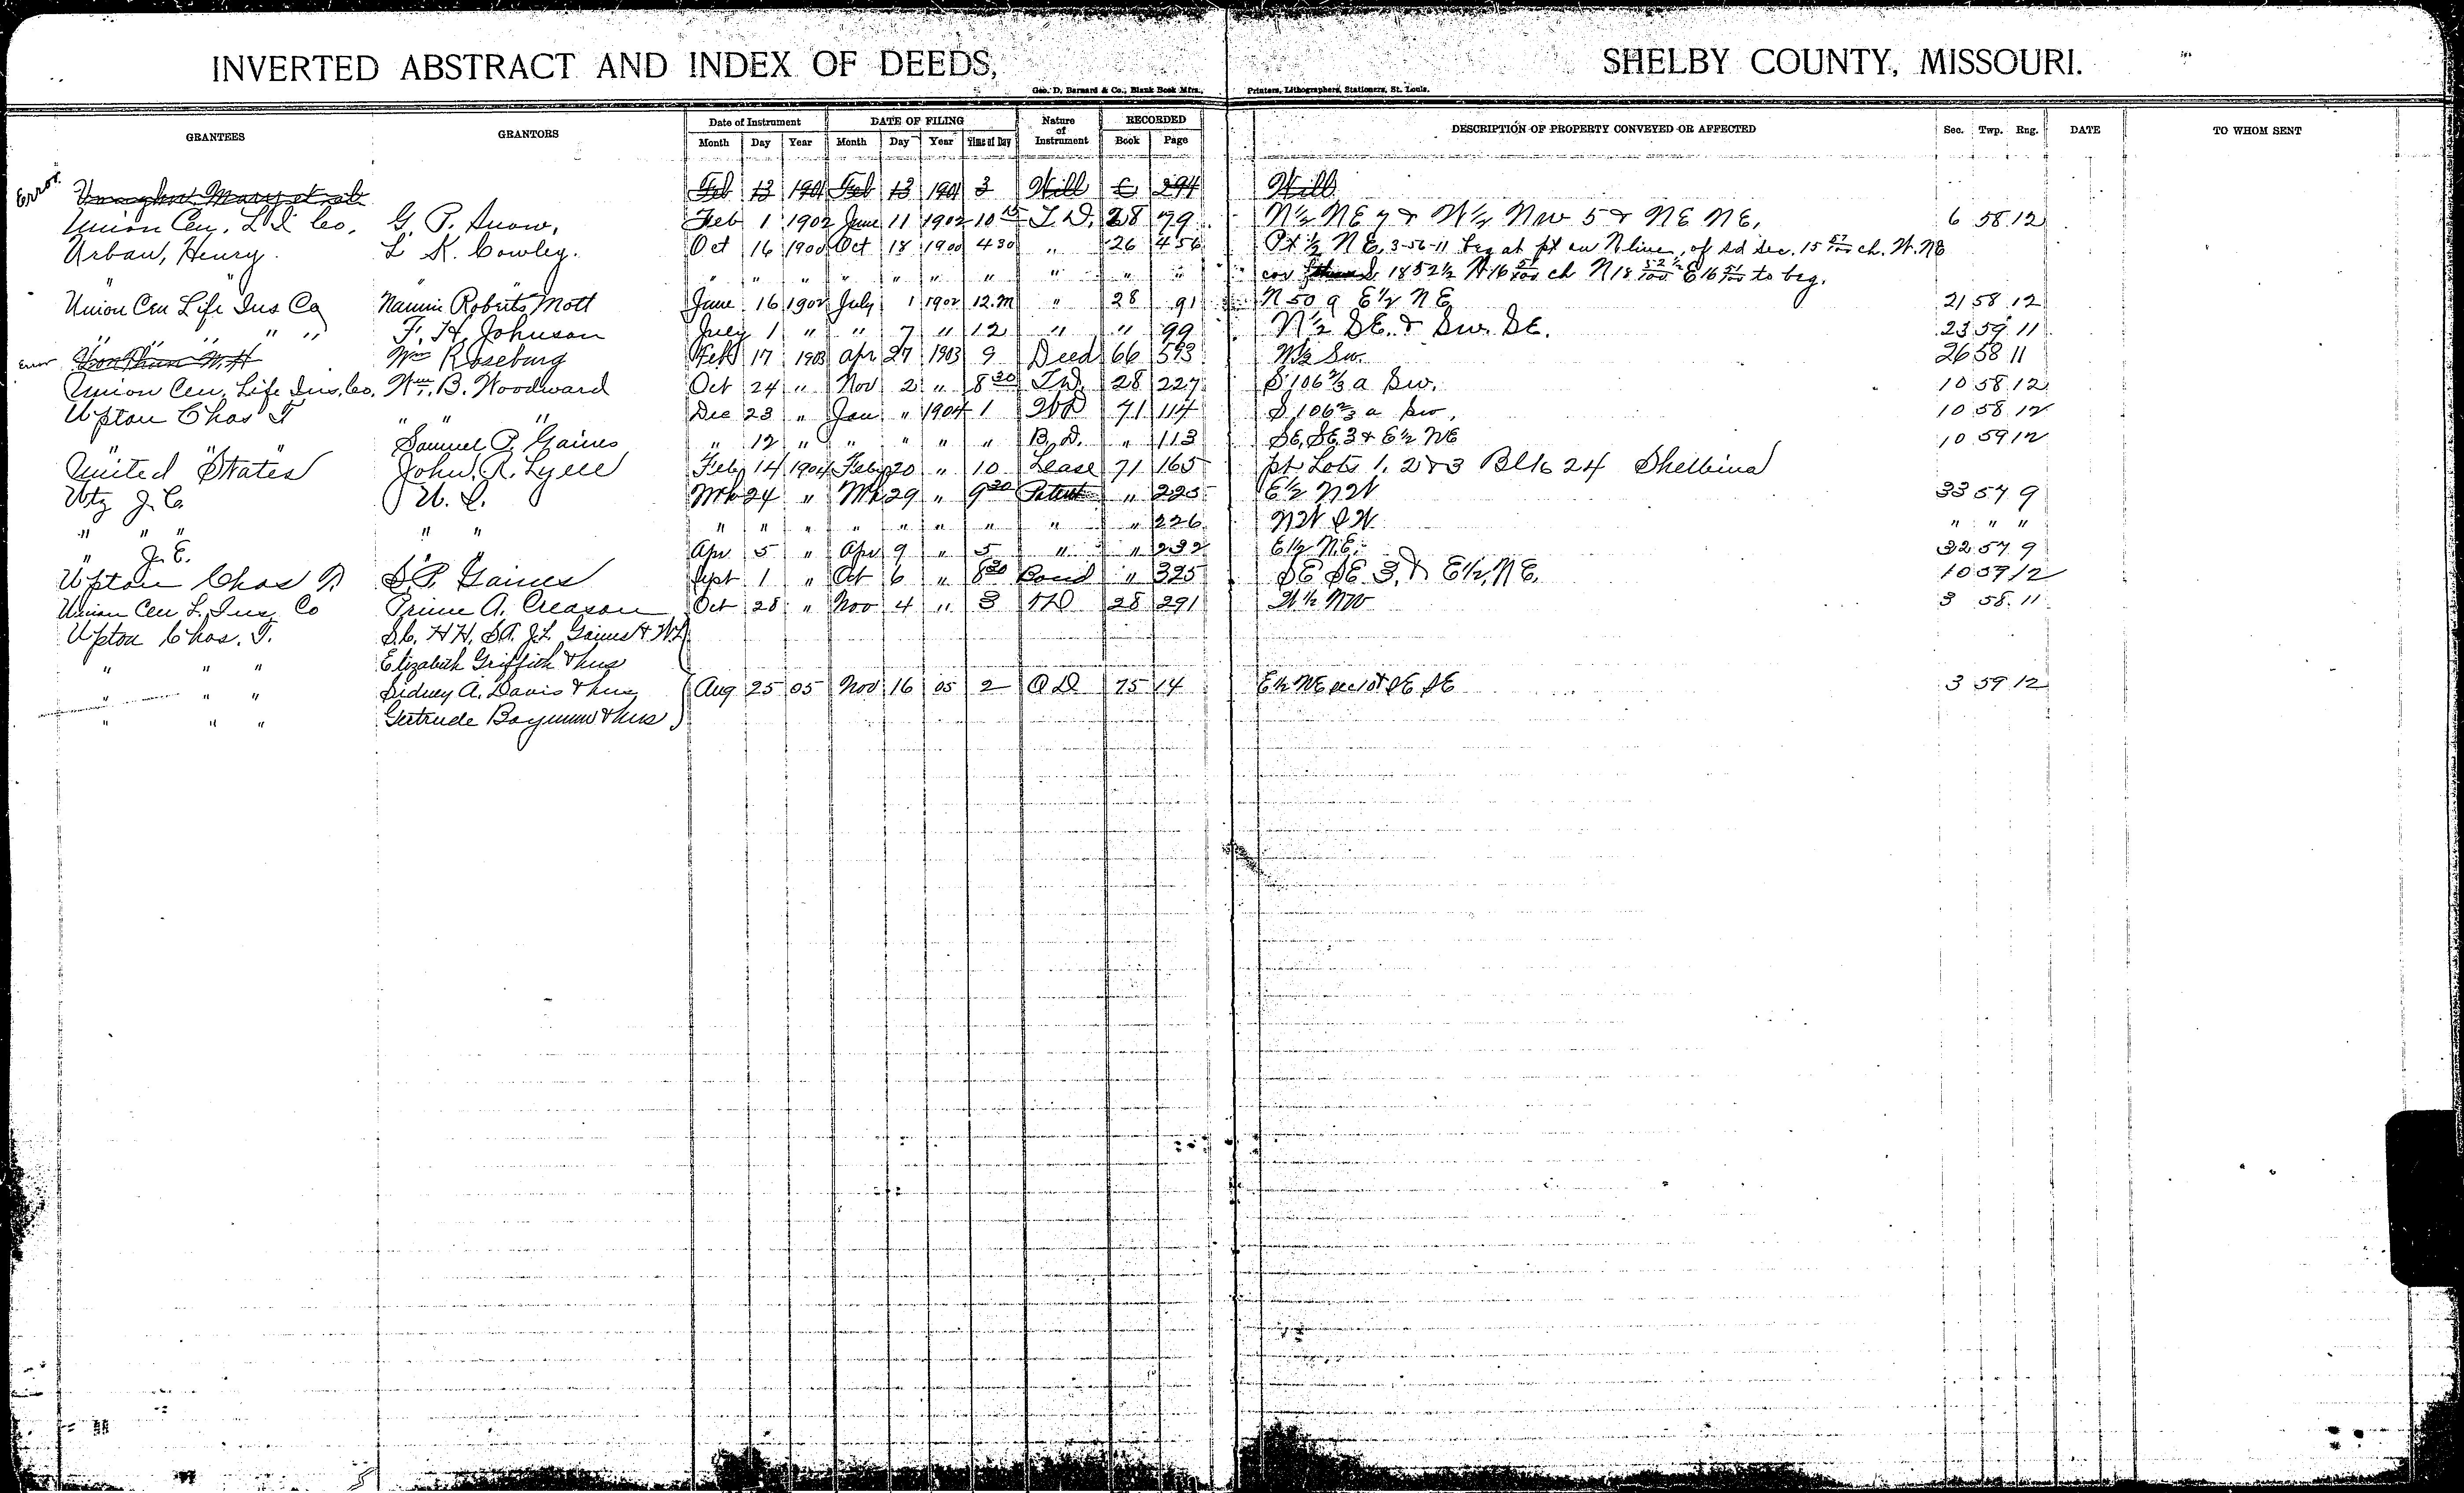 INVERTED ABSTRACT AND INDEX OF DEEDS, SHELBY COUNTY, MISSOURI.
Geo. D. Barnard & Co., Blank Book Mfrs., Printers, Lithographers, Stationers, St. Louis.
GRANTEES GRANTORS Date of Instrument DATE OF FILING Nature of Instrument RECORDED DESCRIPTION OF PROPERTY CONVEYED OR AFFECTED Sec. Twp. Rng. DATE TO WHOM SENT
Month Day Year Month Day Year Time of Day Book Page
Error Mary et al Feb 13 1901 Feb 13 1901 3 Will C 294 Will
Union Cen. L I Co. G. P. Snow, Feb 1 1902 June 11 1902 10 15 T. D. 28 79 N½ NE 7 & W½ NW 5 & NE NE, 6 58 12
Urban, Henry. L K. Cowley. Oct 16 1900 Oct 18 1900 4 30 " 26 456 Pt ½ NE, 3-56-11 beg at pt on N line, of sd sec. 15 57/100 ch. W. NE
" " " " " " " " " " " " cor S. 18 52½ W 16 51/100 ch N 18 52½/100 E 16 51/100 to beg.
Union Cen Life Ins Co Nannie Roberts Mott June 16 1902 July 1 1902 12.M " 28 91 N 50 a E½ NE 21 58 12
" " " " F. H. Johnson July 1 " " 7 " 12 " " 99 N½ SE. & SW. SE. 23 59 11
Error W. H Wm Roseburg Feb 17 1903 Apr 27 1903 9 Deed 66 593 W½ SW. 26 58 11
Union Cen. Life Ins. Co. Wm. B. Woodward Oct 24 " Nov 2 " 8 30 T. D. 28 227 S 106⅔ a SW. 10 58 12
Upton Chas T " " " Dec 23 " Jan " 1904 1 WD 71 114 S 106⅔ a SW, 10 58 12
" " " Samuel P. Gaines " 12 " " " " " B. D. " 113 SE, SE, 3 & E½ NE 10 59 12
United States John R. Lyell Feby 14 1904 Feby 20 " 10 Lease 71 165 pt Lots 1, 2 & 3 Blk 24 Shelbina
Utz J. C. U. S. Mch 24 " Mch 29 " 9 30 Patent " 225 E½ NW 33 57 9
" " " " " " " " " " " " " " 226 NW SW " " "
" J. E. " " Apr 5 " Apr 9 " 5 " " 232 E½ N.E. 32 57 9
Upton Chas T. S. P. Gaines Sept 1 " Oct 6 " 8 30 Bond " 325 SE SE 3, & E½, NE. 10 59 12
Union Cen L. Ins Co Prince A. Creason Oct 28 " Nov 4 " 3 TD 28 291 W½ NW 3 58 11
Upton Chas. T. S. C, H H, S A, J. L Gaines & W. L
" " " Elizabeth Griffith & hus
" " " Sidney A. Davis & hus Aug 25 05 Nov 16 05 2 QD 75 14 E½ NE sec 10 & SE SE 3 59 12
" " " Gertrude & hus